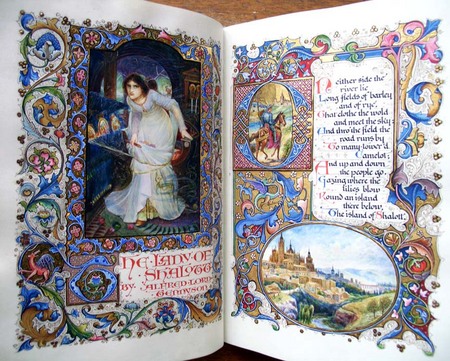 THE LADY OF
SHALOTT
BY ALFRED LORD
TENNYSON
ON either side the
river lie
Long fields of barley
and of rye,
That clothe the wold
and meet the sky;
And thro' the field the
road runs by
To many-tower'd
Camelot;
And up and down
the people go,
Gazing where the
lilies blow
Round an island
there below,
The island of Shalott.